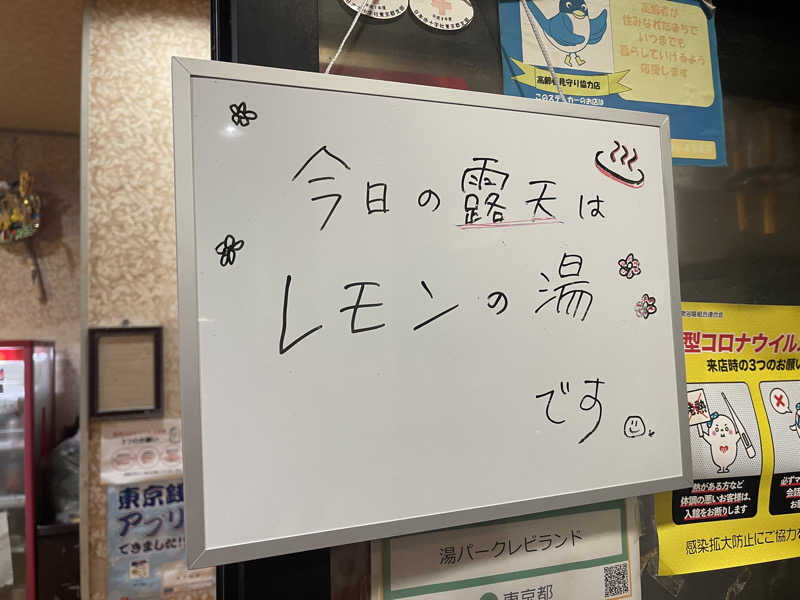 高齢者が
住みなれたまちで
いつまでも
暮らしていけるよう
応援します
高齢者見守り協力店
このステッカーのお店は
今日の露天は
レモンの湯
です
型コロナウイル
来店時の3つのお願い
熱がある方など
体調の悪いお客様は、
入館をお断りします
感染拡大防止にご協力
東京銭
アプリ
できました!!
湯パークレビランド
東京都